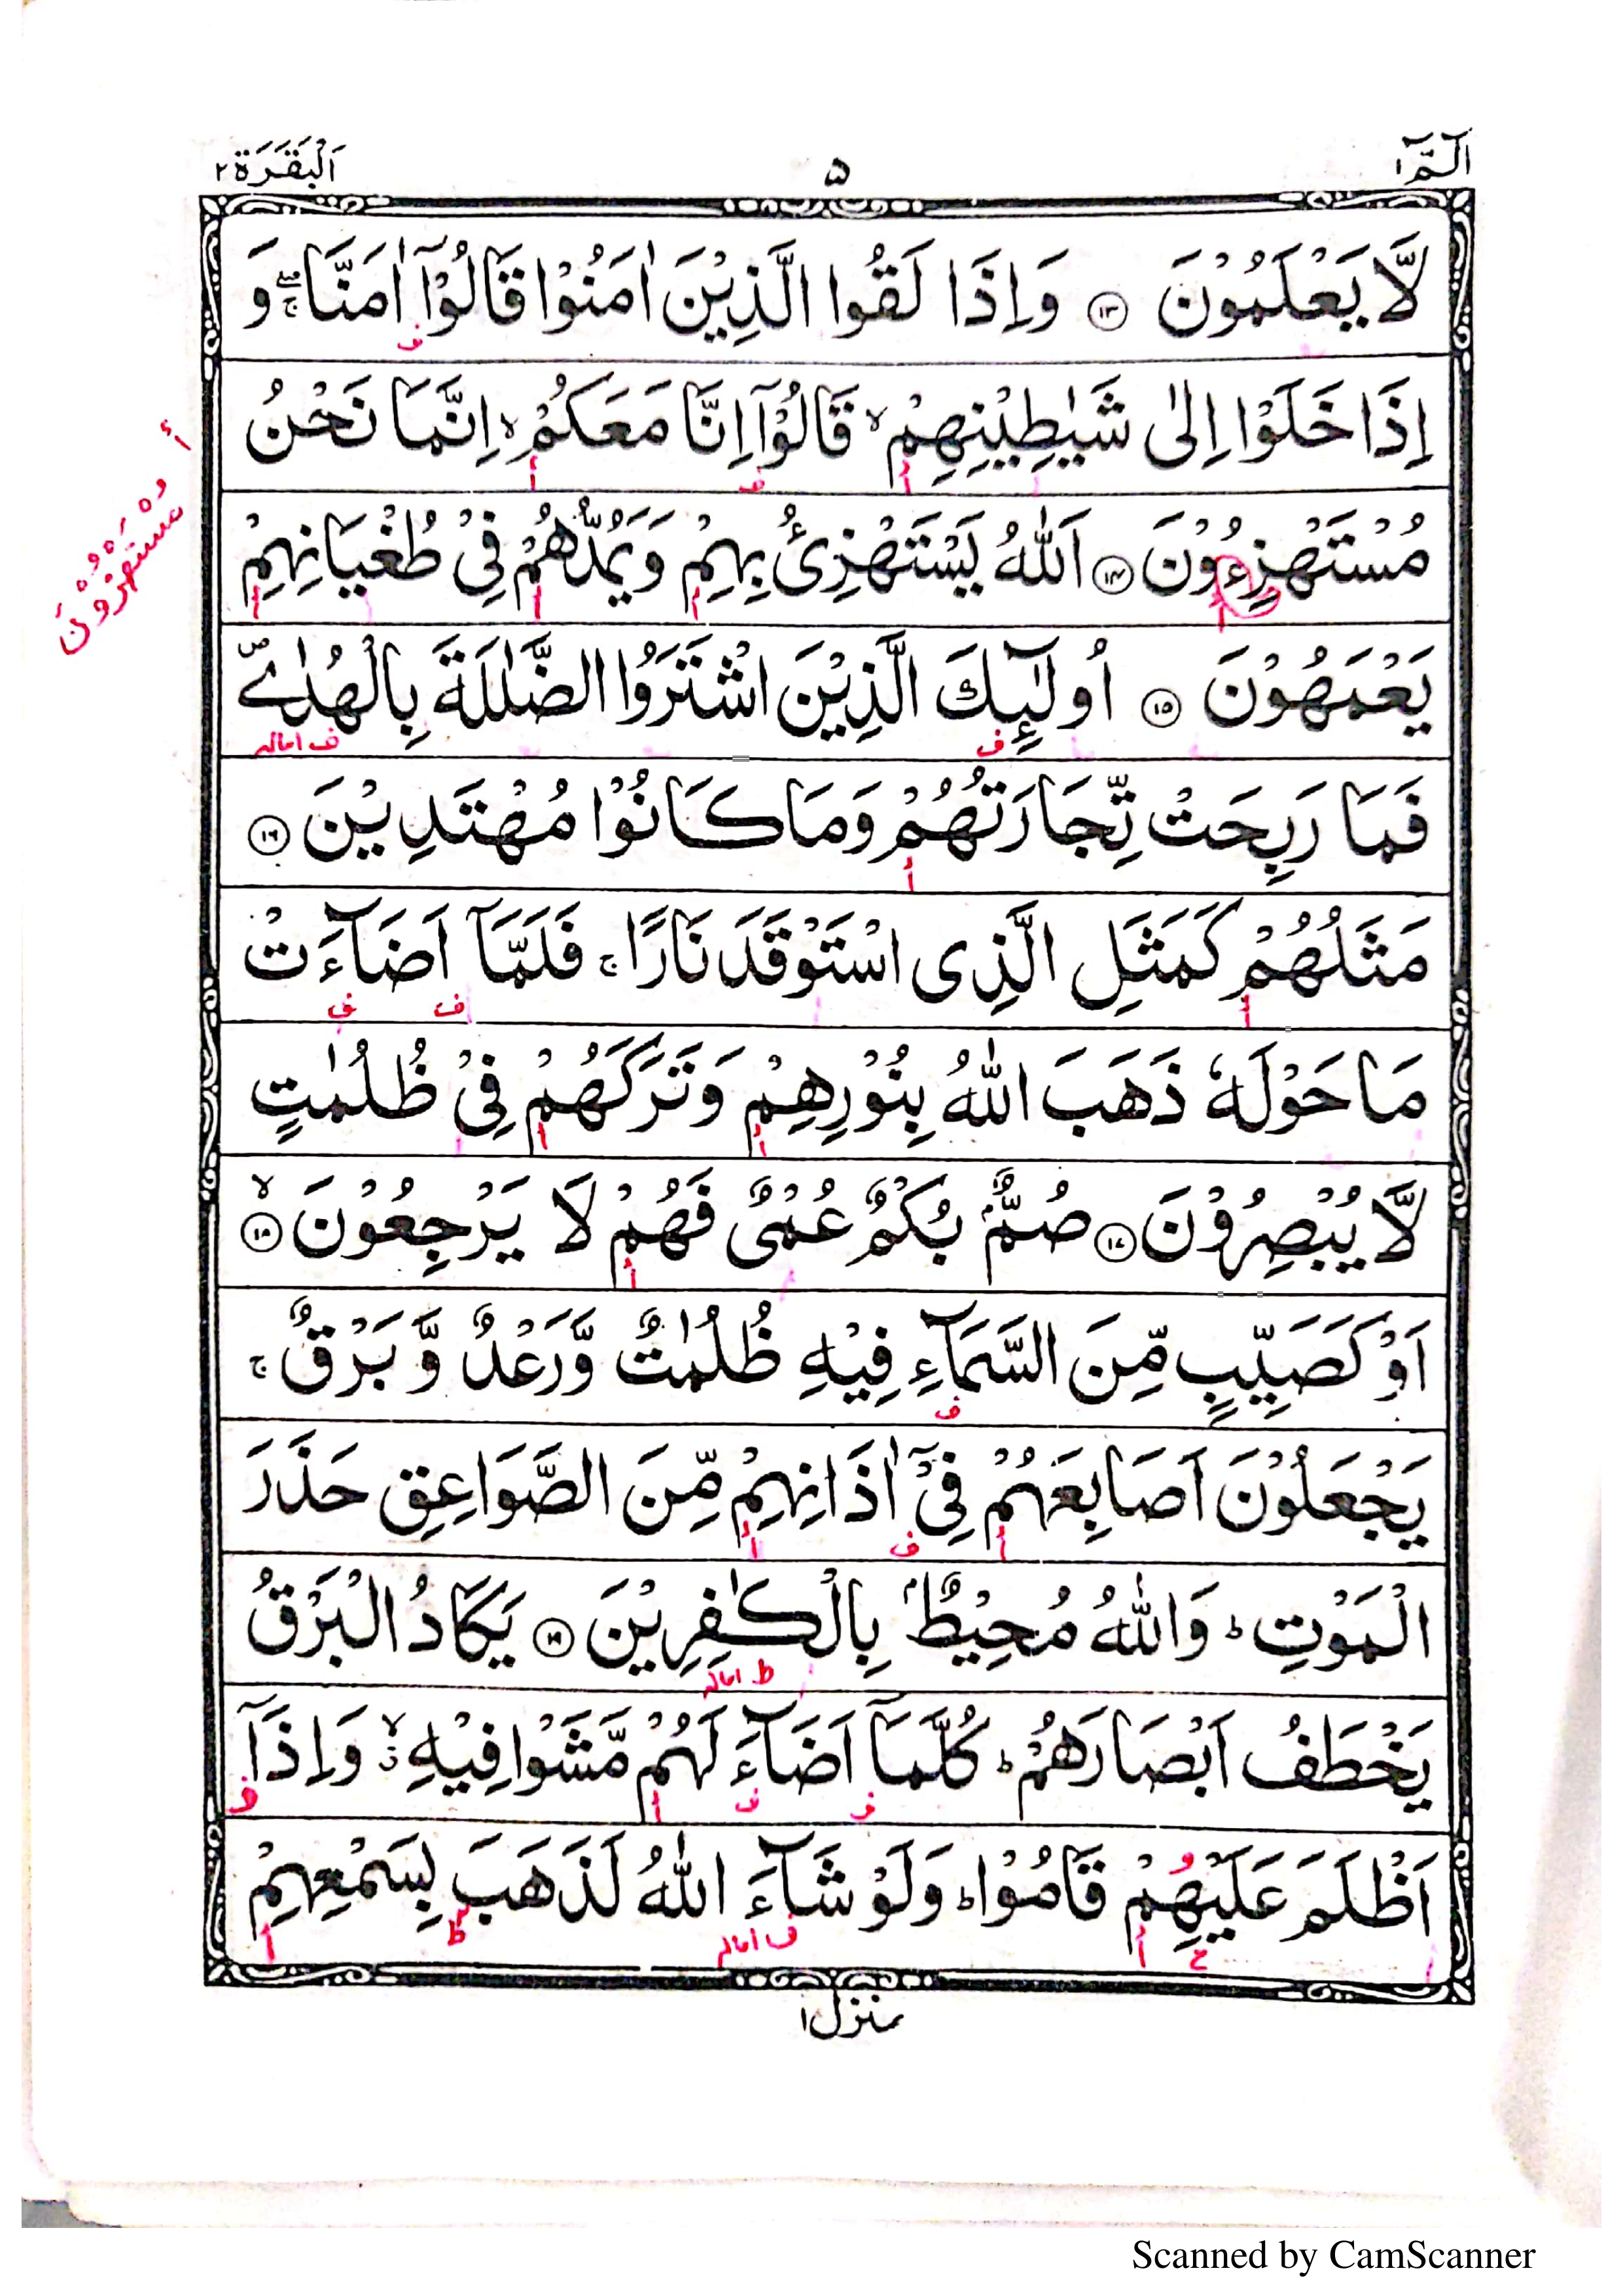 الٓمّٓ ١
٥
اَلْبَقَرَة ٢
لَّا يَعْلَمُوْنَ ١٣ وَاِذَا لَقُوا الَّذِيْنَ اٰمَنُوْا قَالُوْٓا اٰمَنَّا ۚۖ وَ
ف
اِذَا خَلَوْا اِلٰى شَيٰطِيْنِهِمْ ۙ قَالُوْٓا اِنَّا مَعَكُمْ ۙ اِنَّمَا نَحْنُ
أ ف أ
مُسْتَهْزِءُوْنَ ١٤ اَللّٰهُ يَسْتَهْزِئُ بِهِمْ وَيَمُدُّهُمْ فِيْ طُغْيَانِهِمْ
أ أ أ أ
أ
مُسْتَهْزُوْنَ
يَعْمَهُوْنَ ١٥ اُولٰٓئِكَ الَّذِيْنَ اشْتَرَوُا الضَّلٰلَةَ بِالْهُدٰى ۪
ف ف امالہ
فَمَا رَبِحَتْ تِّجَارَتُهُمْ وَمَا كَانُوْا مُهْتَدِيْنَ ١٦
أ
مَثَلُهُمْ كَمَثَلِ الَّذِى اسْتَوْقَدَ نَارًا ۚ فَلَمَّآ اَضَآءَتْ
أ ف ف
مَا حَوْلَهٗ ذَهَبَ اللّٰهُ بِنُوْرِهِمْ وَتَرَكَهُمْ فِيْ ظُلُمٰتٍ
أ أ
لَّا يُبْصِرُوْنَ ١٧ صُمٌّۢ بُكْمٌ عُمْىٌ فَهُمْ لَا يَرْجِعُوْنَ ١٨ ۙ
أ
اَوْ كَصَيِّبٍ مِّنَ السَّمَآءِ فِيْهِ ظُلُمٰتٌ وَّرَعْدٌ وَّبَرْقٌ ۚ
ف
يَجْعَلُوْنَ اَصَابِعَهُمْ فِيْٓ اٰذَانِهِمْ مِّنَ الصَّوَاعِقِ حَذَرَ
أ ف أ
الْمَوْتِ ؕ وَاللّٰهُ مُحِيْطٌۢ بِالْكٰفِرِيْنَ ١٩ يَكَادُ الْبَرْقُ
ط امالہ
يَخْطَفُ اَبْصَارَهُمْ ؕ كُلَّمَآ اَضَآءَ لَهُمْ مَّشَوْا فِيْهِ ۙ وَاِذَآ
ف ف أ ف
اَظْلَمَ عَلَيْهِمْ قَامُوْا ؕ وَلَوْ شَآءَ اللّٰهُ لَذَهَبَ بِسَمْعِهِمْ
ح أ ف امالہ ط أ
منزل ١
Scanned by CamScanner